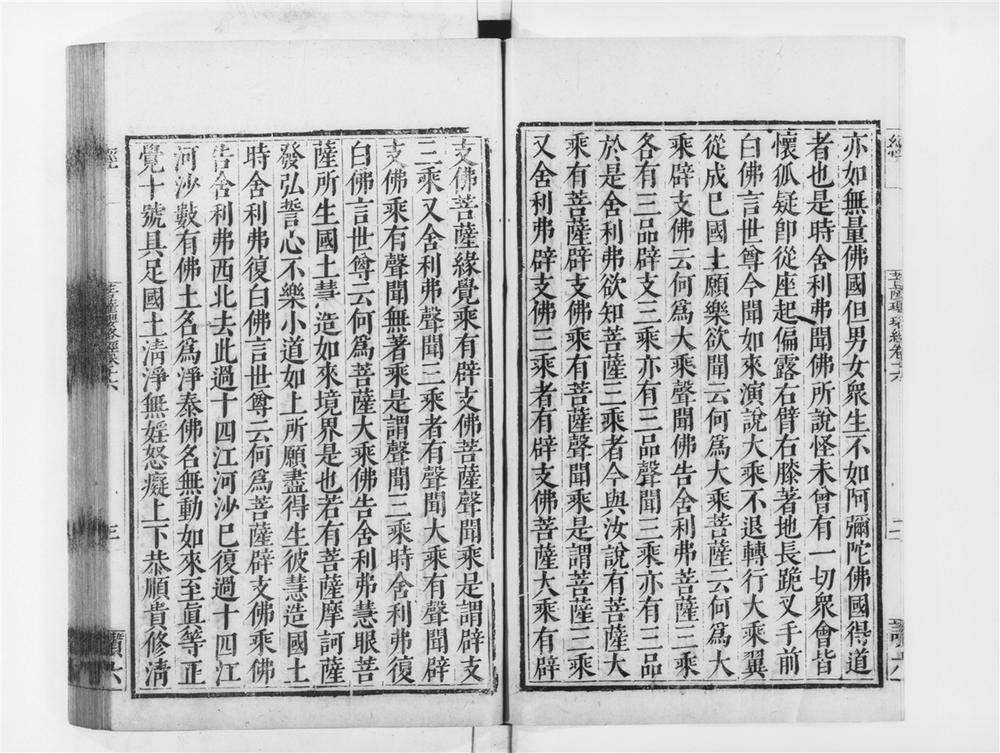 亦如無量佛國但男女衆生不如阿彌陀佛國得道
者也是時舍利弗聞佛所說怪未曾有一切衆會皆
懷狐疑卽從座起偏露右臂右膝著地長跪叉手前
白佛言世尊今聞如來演說大乘不退轉行大乘翼
從成已國土願樂欲聞云何爲大乘菩薩云何爲大
乘辟支佛云何爲大乘聲聞佛告舍利弗菩薩三乘
各有三品辟支三乘亦有三品聲聞三乘亦有三品
於是舍利弗欲知菩薩三乘者今與汝說有菩薩大
乘有菩薩辟支佛乘有菩薩聲聞乘是謂菩薩三乘
又舍利弗辟支佛三乘者有辟支佛菩薩大乘有辟
支佛菩薩緣覺乘有辟支佛菩薩聲聞乘是謂辟支
三乘又舍利弗聲聞三乘者有聲聞大乘有聲聞辟
支佛乘有聲聞無著乘是謂聲聞三乘時舍利弗復
白佛言世尊云何爲菩薩大乘佛告舍利弗慧眼菩
薩所生國土慧造如來境界是也若有菩薩摩訶薩
發弘誓心不樂小道如上所願盡得生彼慧造國土
時舍利弗復白佛言世尊云何爲菩薩辟支佛乘佛
告舍利弗西北去此過十四江河沙已復過十四江
河沙數有佛土名爲淨泰佛名無動如來至眞等正
覺十號具足國土淸淨無婬怒癡上下恭順貴修淸